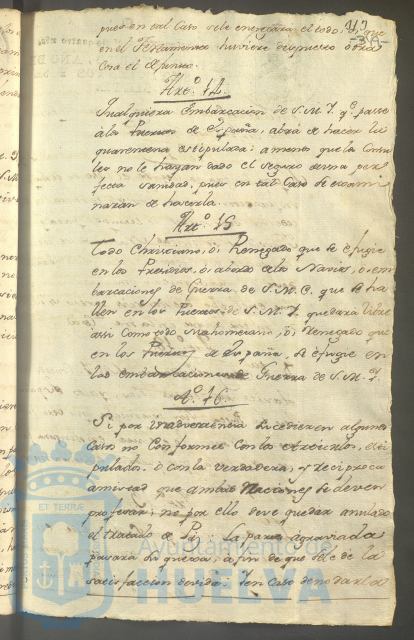 pues en tal Caso se le entregará el todo, á q.e que
en el Testamento huviere dispuesto ótra
Cosa el difunto.
Art.o 14.
Qualquiera Embarcacion de S.M.I. q.e pase
á los Puertos de España, abrá de hacer la
quarentena estipulada: a menos que los Consu
les no le haygan dado el seguro de una per
fecta Sanidad, pues en tal Caso se
narán de hacerla.
Art.o 15
Todo Christiano, ó Renegado que se refugie
en los Presidios, ó, abordo de los Navios, ó em
barcaciones de Guerra de S.M.C. que se ha
llen en los Puertos de S.M.I. quedará libre
assi Como todo Mahometano, ó, Renegado que
en los Puertos de España, se refugie en
las embarcaciones de Guerra de S.M.I.
A.o 16
Si por inadvertencia sucedieren algunos
Casos no Conformes Con los Articulos, esti
pulados, ó con la verdadera, y reciproca
amistad que ambas Naciones se deven
profesar; no por ello deve quedar anulado
el tratado de Paz. La parte agraviada
pasará su quexa, á fin de que se le de la
satisfaccion devida: y en Caso de no darla
ET TERRAE
Ayuntamiento de
HUELVA